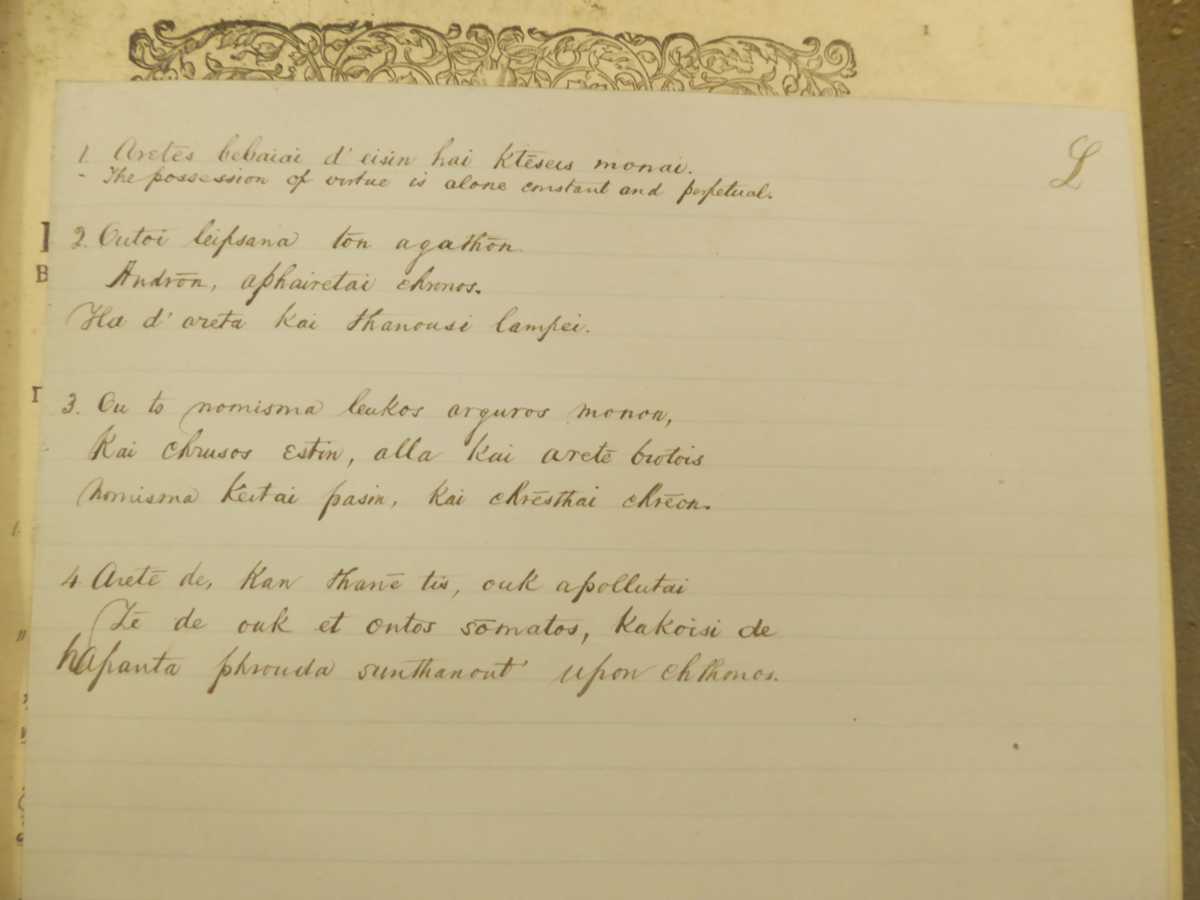 L
1. Aretēs bebaiai d' eisin hai ktēseis monai.
- The possession of virtue is alone constant and perpetual.
2. Outoi leipsana tōn agathōn
Andrōn, aphairetai chronos.
Ha d' areta kai thanousi lampei.
3. Ou to nomisma leukos arguros monon,
Kai chrusos estin, alla kai aretē brotois
nomisma keitai pasin, kai chrēsthai chrēon.
4 Aretē de, kan thanē tis, ouk apollutai
Zē de ouk et ontos sōmatos, kakoisi de
hapanta phrouda sunthanont' upon chthonos.